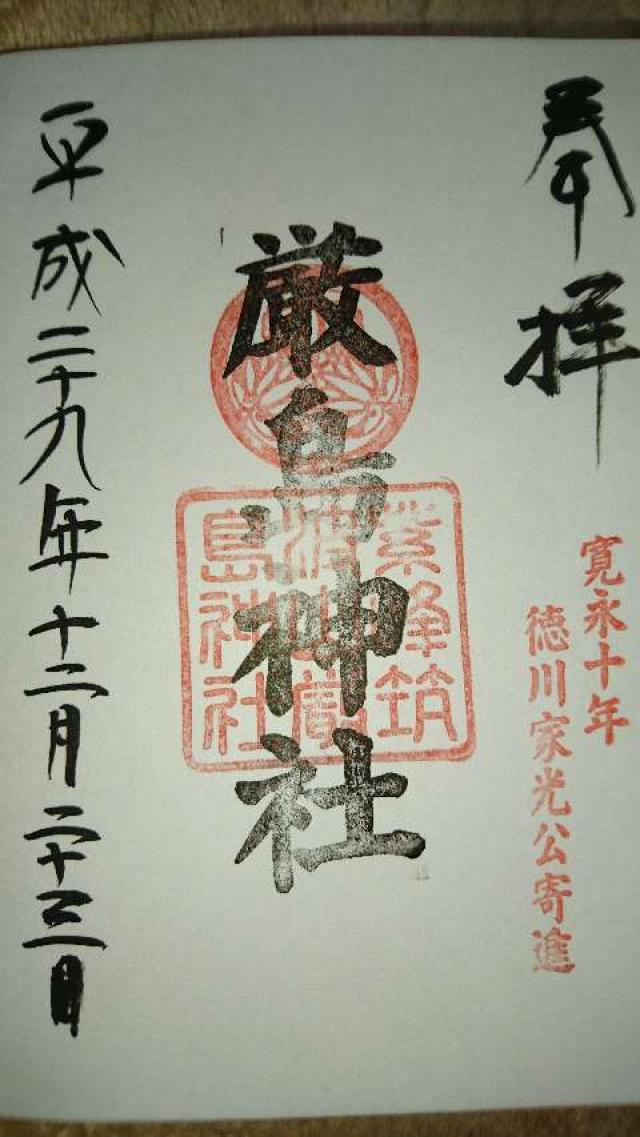 奉拝
寛永十年
徳川家光公寄進
厳島神社
紫峰筑
波山厳
島神社
平成二十九年十二月二十三日